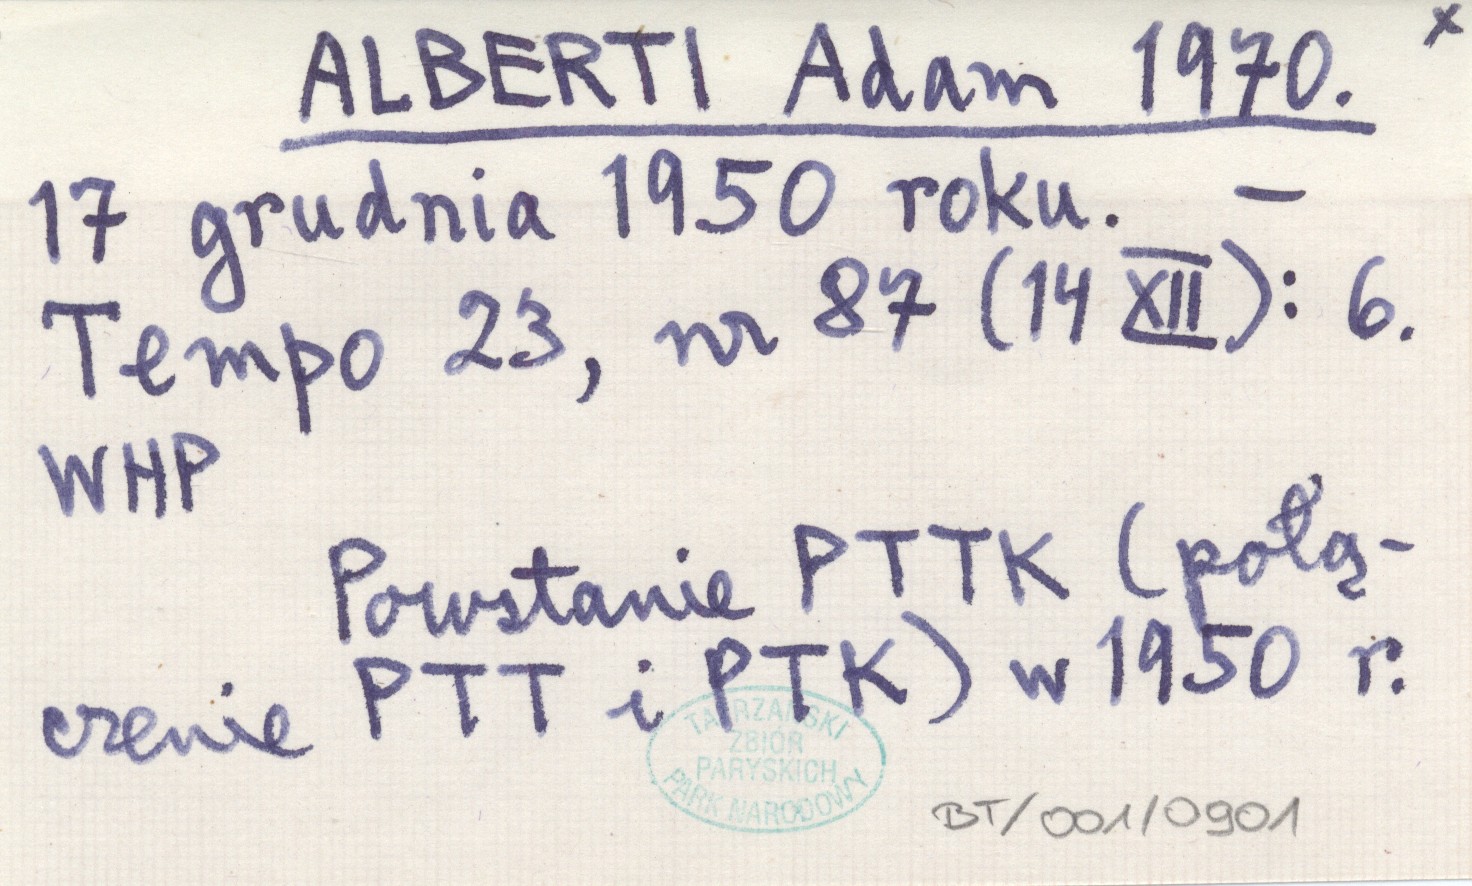 ALBERTI Adam 1970. x
17 grudnia 1950 roku. –
Tempo 23, nr 87 (14 XII): 6.
WHP
Powstanie PTTK (połą-
czenie PTT i PTK) w 1950 r.
TATRZAŃSKI
ZBIÓR
PARYSKICH
PARK NARODOWY
BT/001/0901